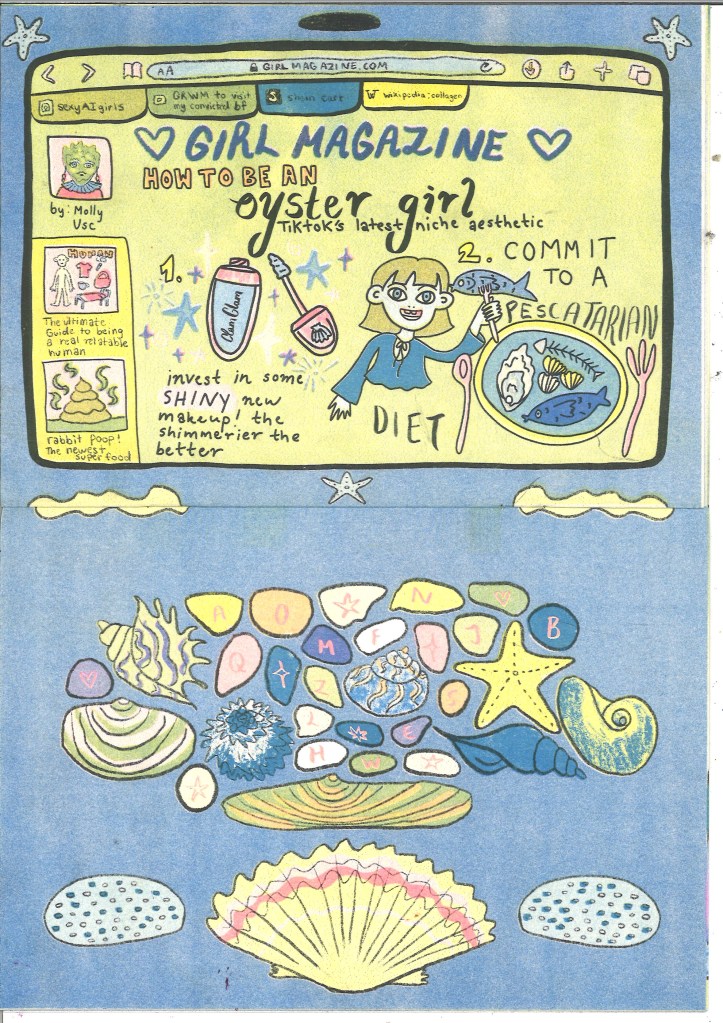 AA
GIRLMAGAZINE.COM
sexyAIgirls
GRWM to visit
my convicted bf
S shein cart
W wikipedia:collagen
GIRL MAGAZINE
HOW TO BE AN
oyster girl
Tiktok's latest niche aesthetic
by: Molly
Vsc
HUMAN
The ultimate
Guide to being
a real relatable
human
rabbit poop!
The newest
super food
1.
Clam Glam
invest in some
SHINY new
makeup! the
shimmerier the
better
2. COMMIT
TO A
PESCATARIAN
DIET
A O N
Q M F J B
Z S
L E
H W